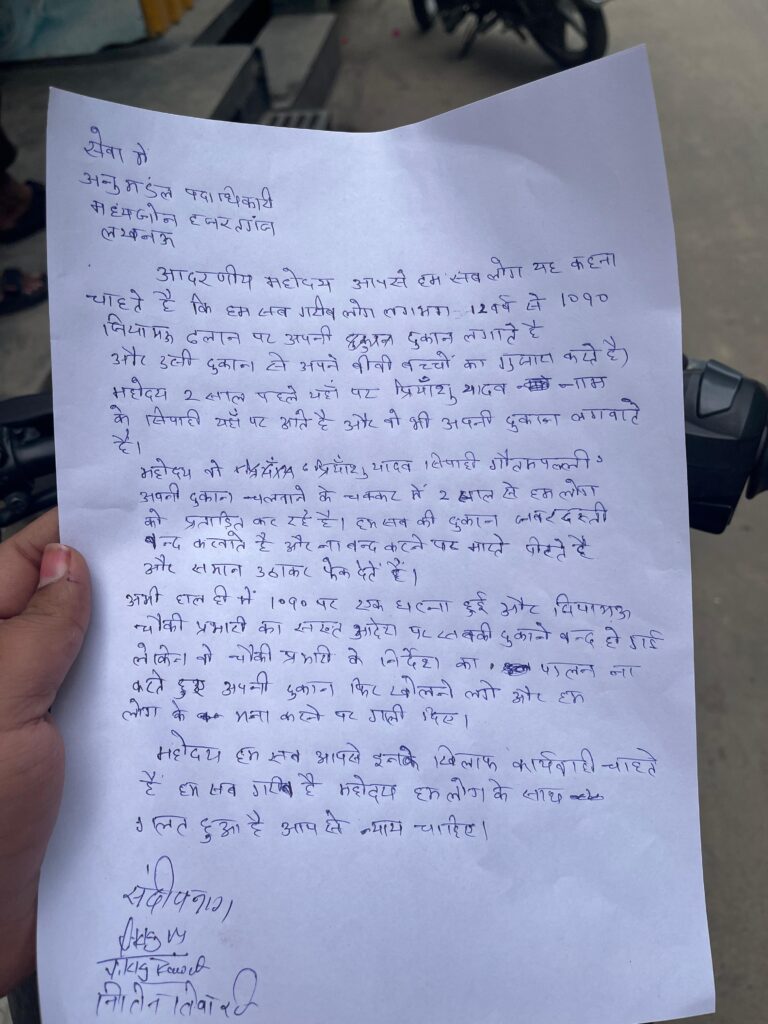 सेवा में
अनुमडंल पदाधिकारी
मध्यजोन हजरतगंज
लखनऊ
आदरणीय महोदय आपसे हम सब लोग यह कहना
चाहते है कि हम सब गरीब लोग लगभग 12 वर्ष से 1090
ढलान पर अपनी दुकान लगाते है
और उसी दुकान से अपने बीवी बच्चों का गुजारा करते है)
महोदय 2 साल पहले यहाँ पर प्रियाँशु यादव नाम
के सिपाही यहाँ पर आते है और वो भी अपनी दुकान लगवाते
है।
महोदय वो प्रियाँशु यादव सिपाही गौतमपल्ली
अपनी दुकान चलवाने के चक्कर में 2 साल से हम लोग
को प्रताड़ित कर रहे है। हम सब की दुकान जबरदस्ती
बन्द करवाते है और ना बन्द करने पर मारते पीटते है
और समान उठाकर फेक देतें हैं।
अभी हाल ही में 1090 पर एक घटना हुई और
चौकी प्रभारी का सख्त आदेश पर सबकी दुकाने बन्द हो गई
लेकिन वो चौकी प्रभारी के निर्देश का पालन ना
करते हुए अपनी दुकान फिर खोलने लगे और हम
लोग के मना करने पर गाली दिए।
महोदय हम सब आपसे इनके खिलाफ कार्यवाही चाहते
हैं हम सब गरीब है महोदय हम लोग के साथ
गलत हुआ है आप से न्याय चाहिए।
संदीप नाग
नितिन तिवारी